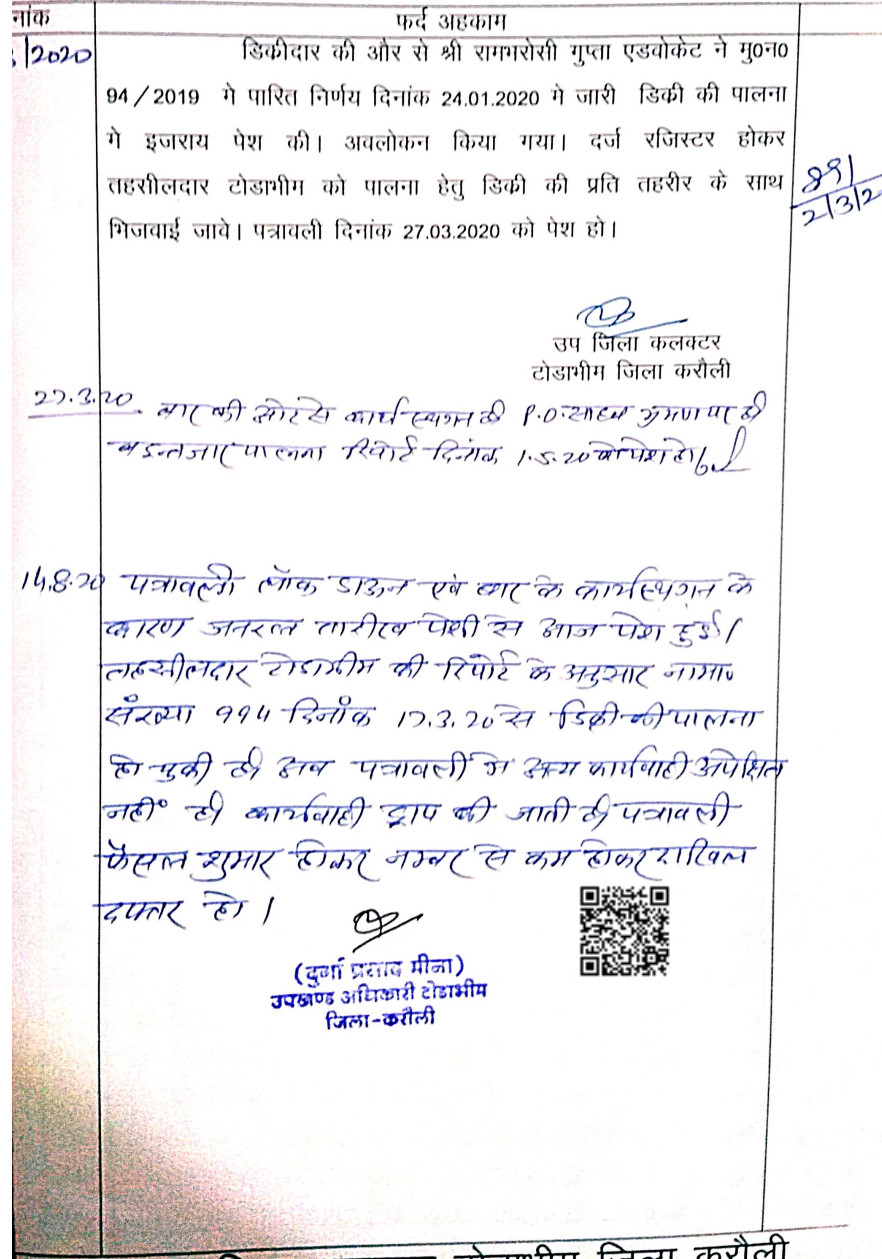 नांक
फर्द अहकाम
/2020
डिकीदार की और से श्री रामभरोसी गुप्ता एडवोकेट ने मु0न0
94/2019 मे पारित निर्णय दिनांक 24.01.2020 मे जारी डिकी की पालना
मे इजराय पेश की। अवलोकन किया गया। दर्ज रजिस्टर होकर
तहसीलदार टोडाभीम को पालना हेतु डिकी की प्रति तहरीर के साथ
भिजवाई जावे। पत्रावली दिनांक 27.03.2020 को पेश हो।
2/3/2
उप जिला कलक्टर
टोडाभीम जिला करौली
27.3.20 बार की ओर से कार्य स्थगन है P.O. साहब भ्रमण पर है
पालना रिपोर्ट दिनांक 1.5.20 को पेश हो।
14.8.20 पत्रावली लॉक डाऊन एवं बार के कार्यस्थगन के
कारण जनरल तारीख पेशी से आज पेश हुई।
तहसीलदार टोडाभीम की रिपोर्ट के अनुसार नामा०
संख्या 994 दिनाँक 17.3.20 से डिक्री की पालना
हो चुकी है। अब पत्रावली में अन्य कार्यवाही अपेक्षित
नहीं है। कार्यवाही ड्राप की जाती है। पत्रावली
फैसल शुमार होकर नम्बर से कम होकर दाखिल
दफ्तर हो।
(दुर्गा प्रसाद मीना)
उपखण्ड अधिकारी टोडाभीम
जिला-करौली